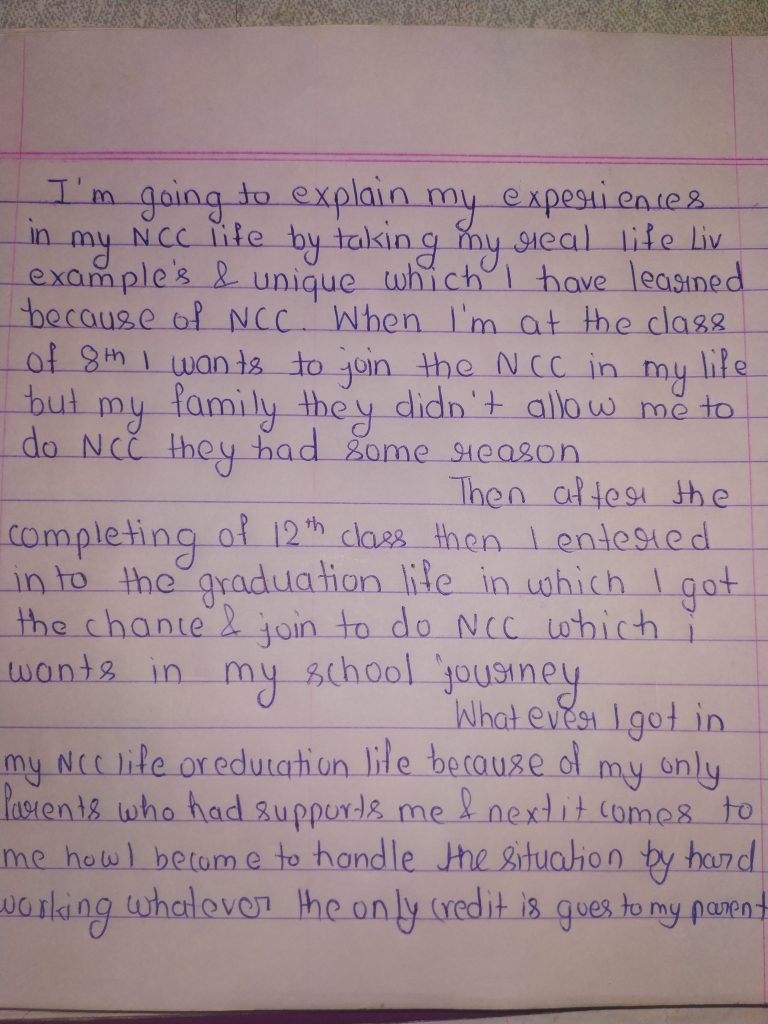 I'm going to explain my experiences
in my NCC life by taking my real life Liv
example's & unique which I have learned
because of NCC. When I'm at the class
of 8th I wants to join the NCC in my life
but my family they didn't allow me to
do NCC they had some reason
Then after the
completing of 12th class then I entered
into the graduation life in which I got
the chance & join to do NCC which i
wants in my school journey
Whatever I got in
my NCC life or education life because of my only
Parents who had supports me & next it comes to
me how I become to handle the situation by hard
working whatever the only credit is goes to my parent